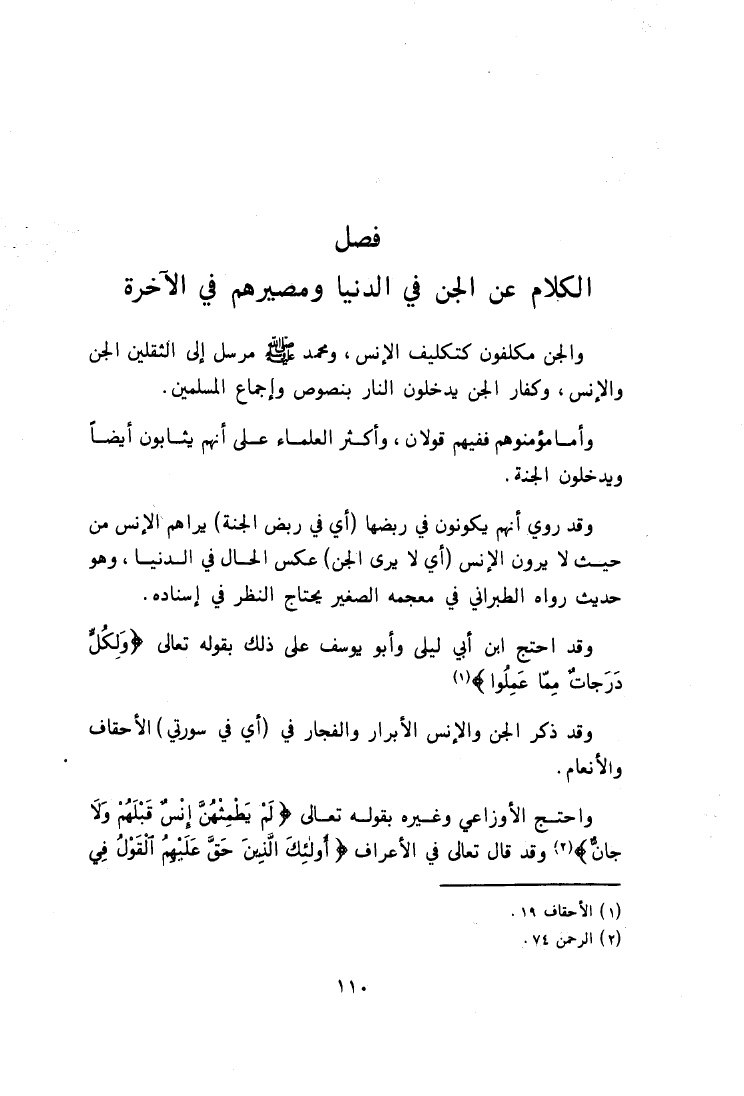 فصل
الكلام عن الجن في الدنيا ومصيرهم في الآخرة
والجن مكلفون كتكليف الإنس ، ومحمد ﷺ مرسل إلى الثقلين الجن
والإنس ، وكفار الجن يدخلون النار بنصوص وإجماع المسلمين .
وأما مؤمنوهم ففيهم قولان ، وأكثر العلماء على أنهم يثابون أيضاً
ويدخلون الجنة .
وقد روي أنهم يكونون في ربضها (أي في ربض الجنة) يراهم الإنس من
حيث لا يرون الإنس (أي لا يرى الجن) عكس الحال في الدنيا ، وهو
حديث رواه الطبراني في معجمه الصغير يحتاج النظر في إسناده .
وقد احتج ابن أبي ليلى وأبو يوسف على ذلك بقوله تعالى ﴿وَلِكُلٍّ
دَرَجاتٌ مِمّا عَمِلُوا﴾(١)
وقد ذكر الجن والإنس الأبرار والفجار في (أي في سورتي) الأحقاف
والأنعام .
واحتج الأوزاعي وغيره بقوله تعالى ﴿ لَمْ يَطْمِثْهُنَّ إِنْسٌ قَبْلَهُمْ وَلَا
جانٌّ﴾(٢) وقد قال تعالى في الأعراف ﴿ أُولٰئِكَ الَّذِينَ حَقَّ عَلَيْهِمُ ٱلْقَوْلُ فِي
(١) الأحقاف ١٩ .
(٢) الرحمن ٧٤ .
١١٠